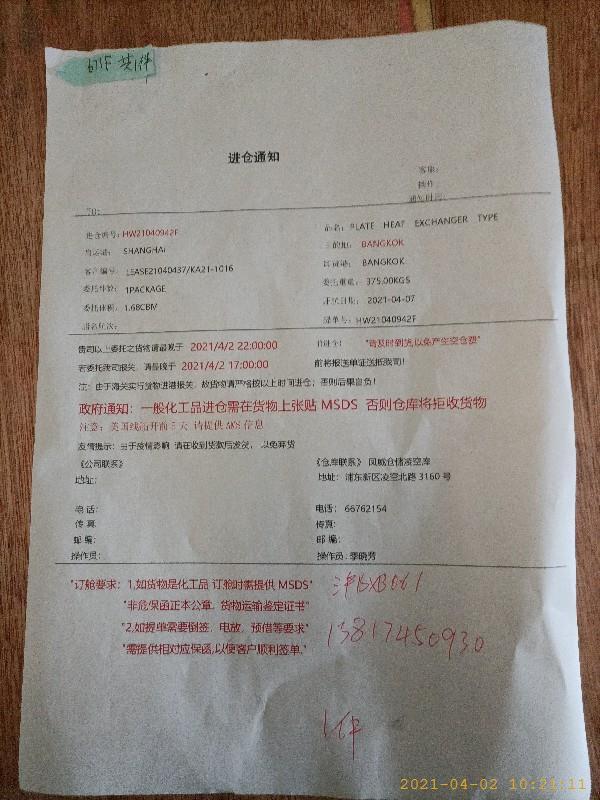 942F 共1件
进仓通知
客服:
操作:
通知时间:
TO:
进仓编号: HW21040942F
品名: PLATE HEAT EXCHANGER TYPE
启运港: SHANGHAI
目的地: BANGKOK
客户编号: LEASE21040437/KA21-1016
BANGKOK
委托件数: 1PACKAGE
委托重量: 375.00KGS
委托体积: 1.68CBM
开航日期: 2021-04-07
船名航次:
提单号: HW21040942F
贵司以上委托之货物请最晚于 2021/4/2 22:00:00 前进仓: "请及时到货,以免产生空仓费"
若委托我司报关, 请最晚于 2021/4/2 17:00:00 前将报送单证送抵我司!
注: 由于海关实行货物进港报关, 故货物请严格按以上时间进仓; 否则后果自负!
政府通知: 一般化工品进仓需在货物上张贴 MSDS 否则仓库将拒收货物
注意: 美国线船开前5天, 请提供 AMS 信息
友情提示: 由于疫情影响 请在收到货款后发货, 以免弃货
《公司联系》
《仓库联系》 风威仓储凌空库
地址:
地址: 浦东新区凌空北路 3160 号
电话:
电话: 66762154
传真:
传真:
邮编:
邮编:
操作员:
操作员: 季晓芳
"订舱要求: 1,如货物是化工品 订舱时需提供 MSDS"
"非危保函正本公章, 货物运输鉴定证书"
"2,如提单需要倒签, 电放, 预借等要求"
"需提供相对应保函,以便客户顺利签单."
13817450930
1件
2021-04-02 10:21:11